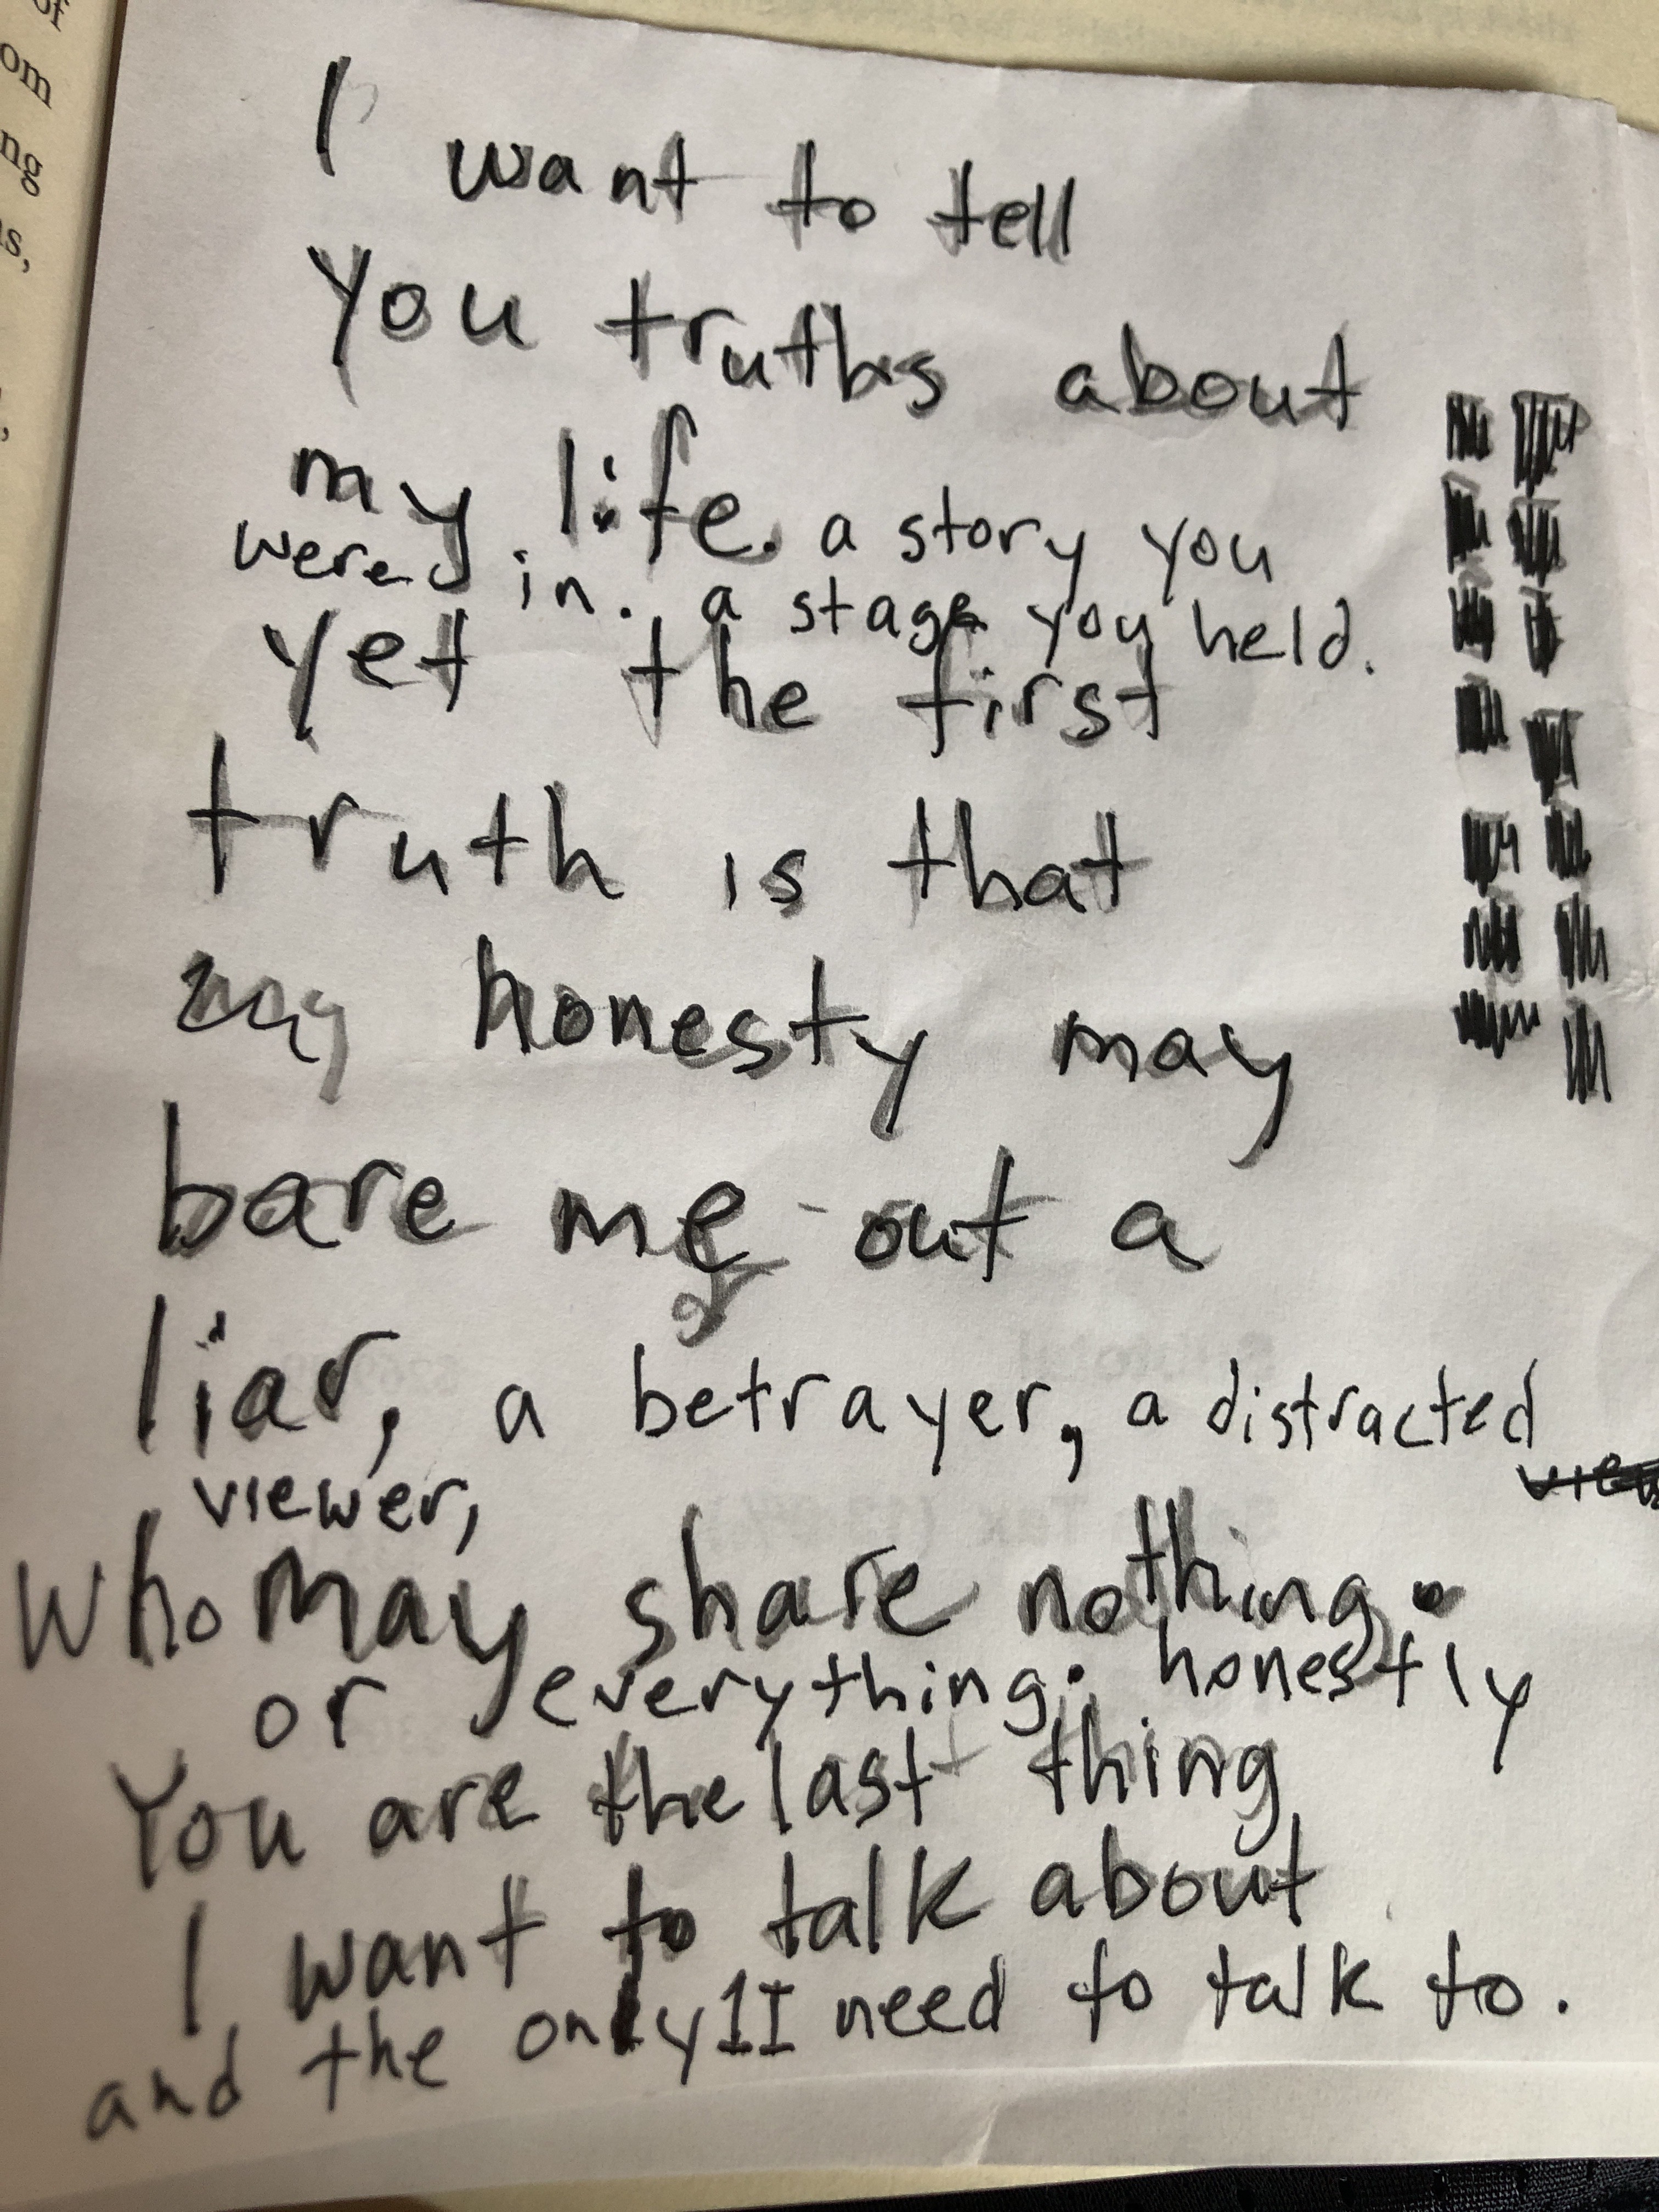 of
om
ng
s,
I want to tell
you truths about
my life. a story you
were in. a stage you held.
yet the first
truth is that
my honesty may
bare me out a
liar, a betrayer, a distracted
viewer,
who may share nothing.
or everything. honestly
You are the last thing
I want to talk about
and the only 1 I need to talk to.